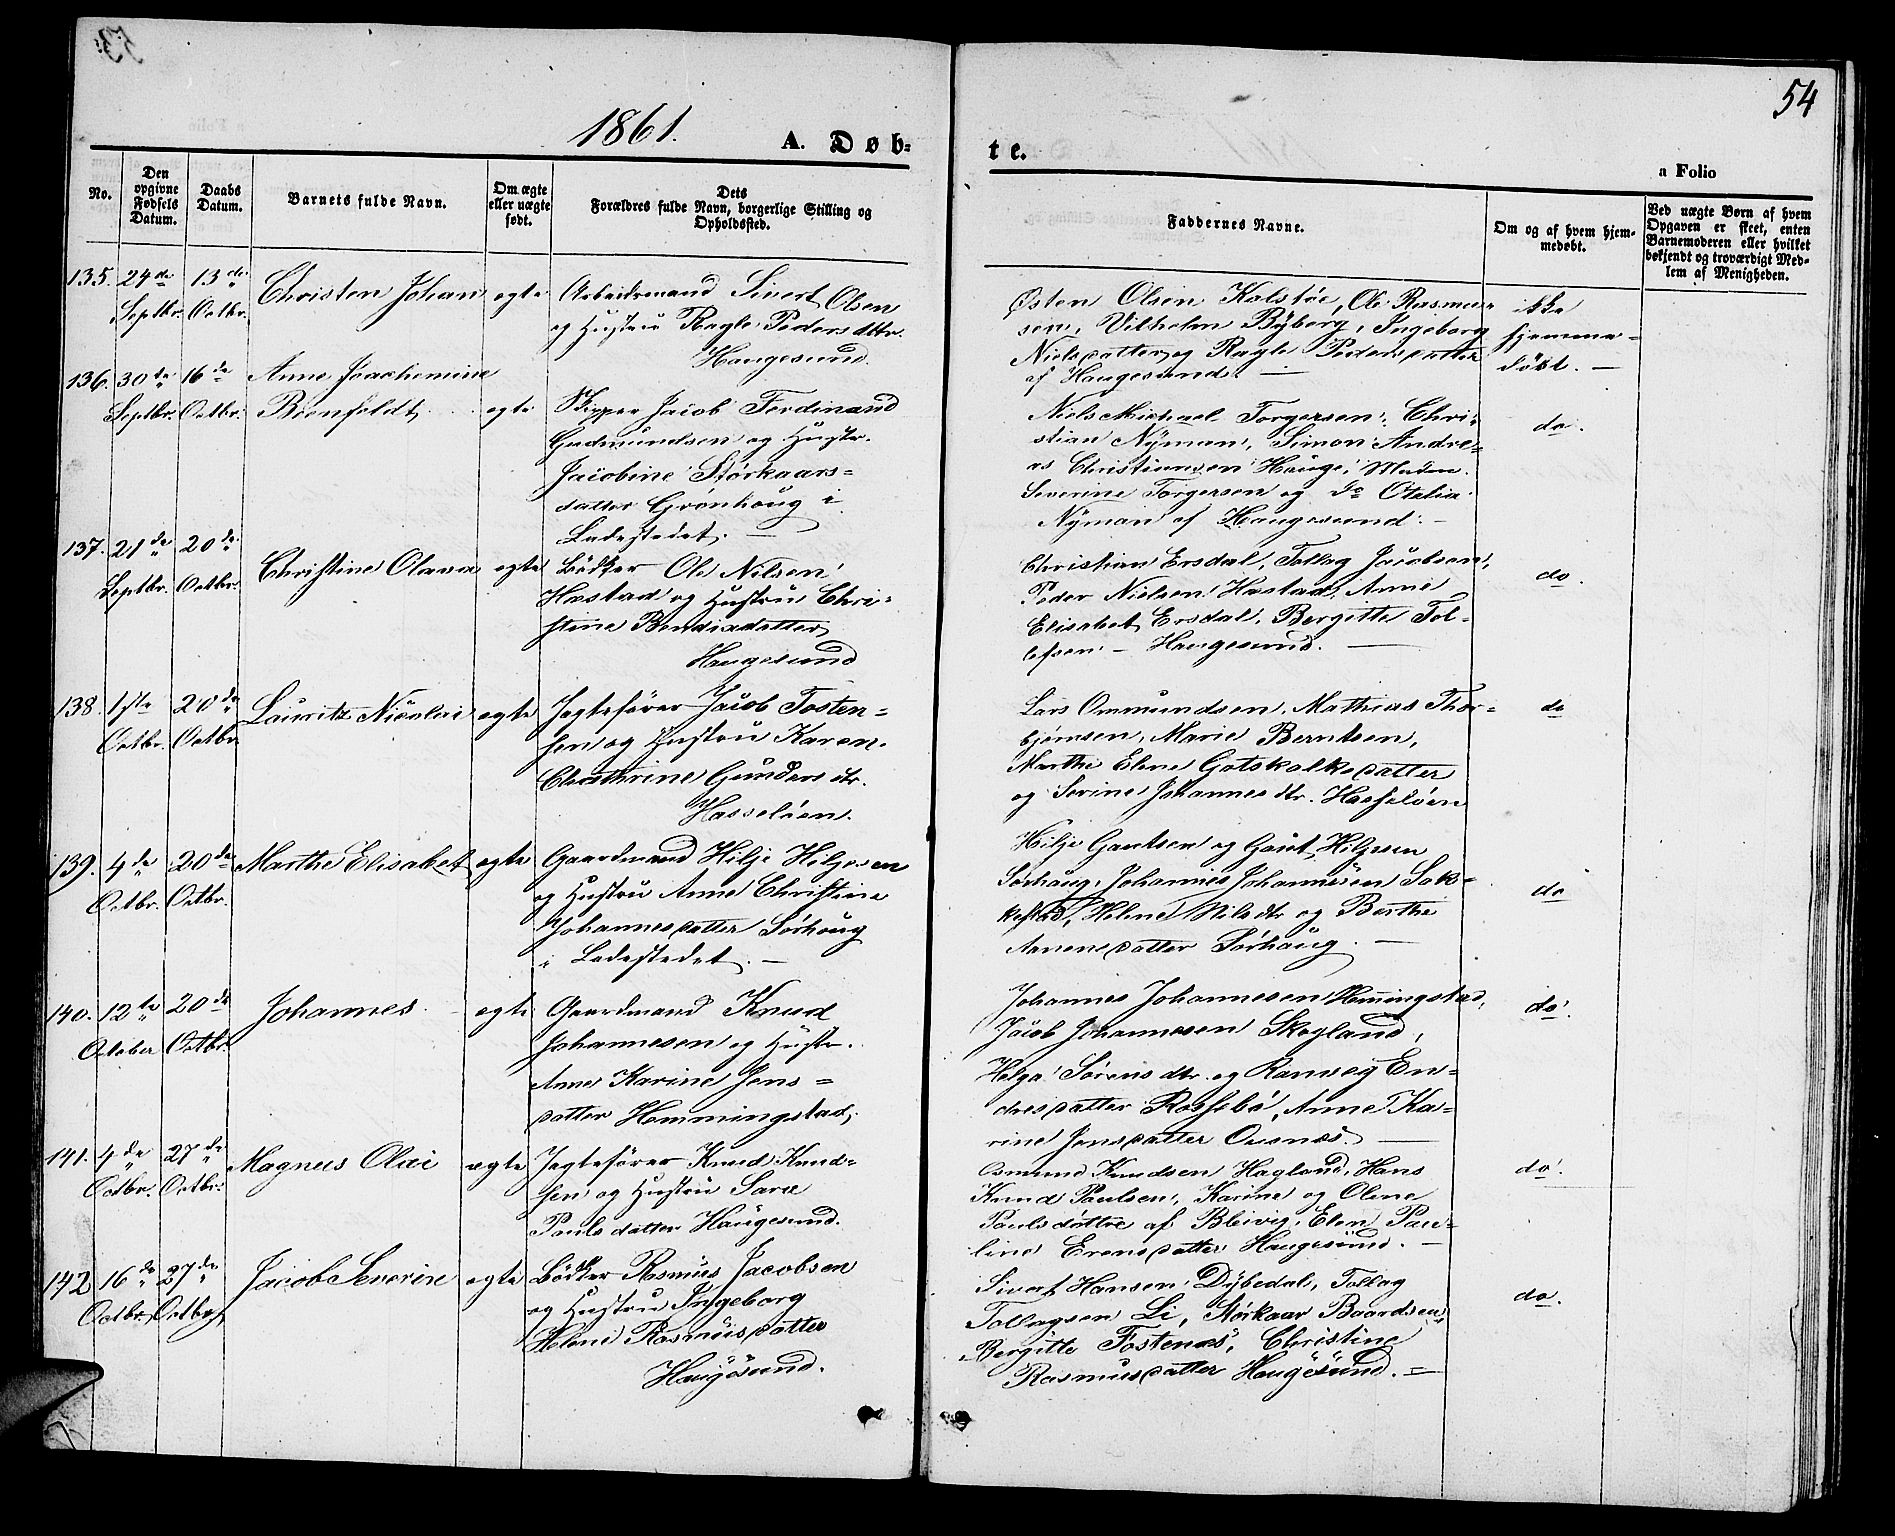 54
1861.
A. Døb-
te.
a Folio
No.
Den opgivne Fødsels Datum.
Daabs Datum.
Barnets fulde Navn.
Om ægte eller uægte født.
Dets Forældres fulde Navn, borgerlige Stilling og Opholdssted.
Faddernes Navne.
Om og af hvem hjem-
medøbt.
Ved uægte Børn af hvem
Opgaven er skeet, enten
Barnemoderen eller hvilket
bekjendt og troværdigt Med-
lem af Menigheden.
135. 24de Septbr. 13de Octbr. Christen Johan ægte
Arbeidsmand Sivert Olsen
og Hustru Ragle Pedersdttr.
Haugesund
Østen Olsen Kolstøe, Ole Rasmus-
sen, Vilhelm Byberg, Ingeborg
Nielsdatter og Ragle Pedersdatter
af Haugesund. —
ikke
hjemme-
døbt. —
136. 30te Septbr. 16de Octbr. Anne Joachemine
Bienfeldt ægte
Skipper Jacob Ferdinand
Gudmundsen og Hustr.
Jacobine Størkaars-
datter Grønhoug i
Ladestedet. —
Niels Michael Torgersen, Chri-
stian Nyman, Simon Andre-
as Christiansen Hauge, Madm.
Severine Torgersen og do Otalia
Nyman af Haugesund. —
do.
137. 21de Septbr. 20de Octbr. Christine Olava ægte
Bødker Ole Nilsen
Hastad og Hustru Chri-
stine Bendixdatter
Haugesund
Christian Ersdal, Tollag Jacobsen,
Peder Nielsen Hastad, Anne
Elisabet Ersdal, Bergitte Tol-
lefsen — Haugesund. —
do.
138. 1ste Octbr. 20de Octbr. Lauritz Nicolai ægte
Jagtefører Jacob Tosten-
sen og Hustru Karen
Chathrine Gundersdtr.
Hasseløen.
Lars Ommundsen, Mathias Thor-
bjørnsen, Marie Berntsen,
Marthe Elene Gotskalksdatter
og Serine Johannesdtr. Hasseløen
do
139. 4de Octbr. 20de Octbr. Marthe Elisabet ægte
Gaardmand Hilje Hiljesen
og Hustru Anne Christine
Johannesdatter Sørhoug
i Ladestedet. —
Hilje Gautsen og Gaut Hiljesen
Sørhaug, Johannes Johannesen Sak-
kestad, Helene Nilsdtr og Berthe
Arnensdatter Sørhaug. —
do
140. 12te October 20de Octbr. Johannes ægte
Gaardmand Knud
Johannesen og Hustr.
Anne Karine Jens-
datter Hemmingstad,
Johannes Johannesen Hemingstad,
Jacob Johannesen Skogland,
Helga Sørensdtr. og Ranveg En-
dresdatter Rossebø, Anne Ka-
rine Jensdatter Qvenæs. —
do.
141. 4de Octbr. 27de Octbr. Magnus Olai ægte
Jagtefører Knud Knud-
sen og Hustru Sara
Paulsdatter Haugesund.
Osmund Knudsen Hagland, Hans
Knud Paulsen, Karine og Olene
Paulsdøttre af Bleivig, Elen Pau-
line Erensdatter Haugesund. —
do.
142 16de Octbr. 27de Octbr. Jacob Severin ægte
Bødker Rasmus Jacobsen
og Hustru Ingeborg
Helene Rasmusdatter
Haugesund.
Sivert Hansen Dybedal, Tollag
Tollagsen Li, Størkaar Baardsen,
Bergitte Tostenæs, Christine
Rasmusdatter Haugesund. —
do.